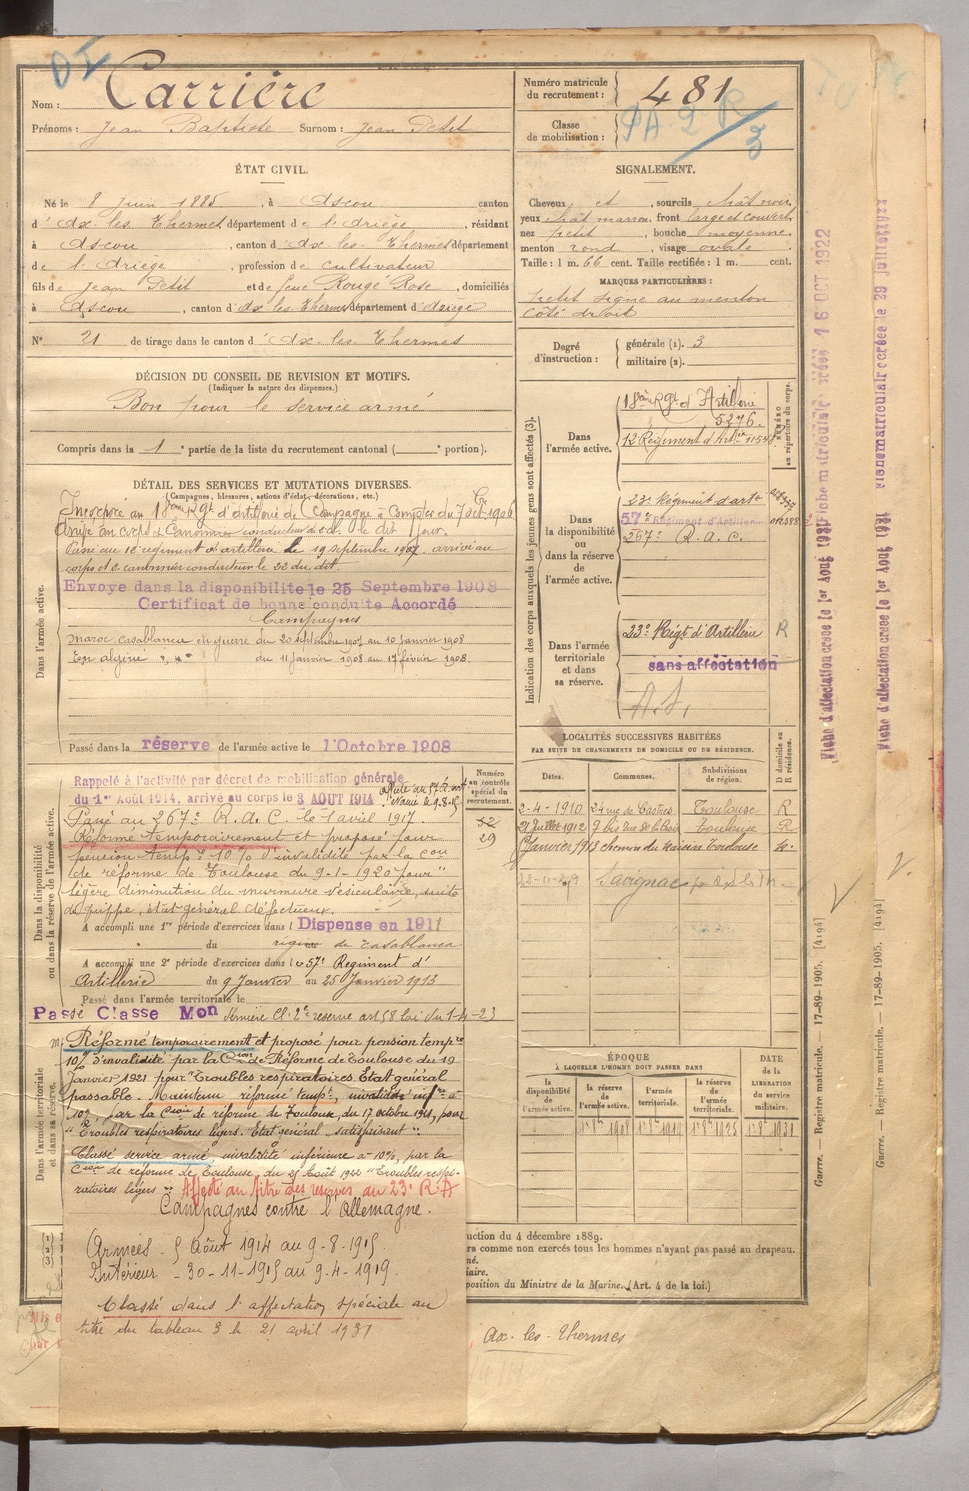 DI
Nom : Carrière
Prénoms : Jean Baptiste Surnom : Jean Petit
ÉTAT CIVIL.
Né le 8 juin 1885, à Ascou canton
d'Ax les Thermes, département de l'Ariège, résidant
à Ascou, canton d'Ax les Thermes département
de l'Ariège, profession de cultivateur
fils de Jean Petit et de feue Rouge Rose, domiciliés
à Ascou, canton d'Ax les Thermes département d'Ariège
N° 21 de tirage dans le canton d'Ax-les-Thermes
DÉCISION DU CONSEIL DE REVISION ET MOTIFS.
(Indiquer la nature des dispenses.)
Bon pour le service armé
Compris dans la 1e partie de la liste du recrutement cantonal ( e portion).
DÉTAIL DES SERVICES ET MUTATIONS DIVERSES.
(Campagnes, blessures, actions d'éclat, décorations, etc.)
Incorporé au 18ème Rgt d'artillerie de Campagne à Compter du 7 oct 1906
Arrivé au corps et Canonnier conducteur le dit jour.
Passé au 12e régiment d'artillerie le 19 septembre 1907 arrivé au
corps et 2e canonnier conducteur le 22 du dit.
Envoyé dans la disponibilité le 25 Septembre 1908
Certificat de bonne conduite Accordé
Campagnes
Maroc Casablanca en guerre du 20 septembre 1907 au 10 janvier 1908
En Algérie " " du 11 janvier 1908 au 17 février 1908.
Dans l'armée active.
Passé dans la réserve de l'armée active le 1 Octobre 1908
Rappelé à l'activité par décret de mobilisation générale
du 1er Août 1914, arrivé au corps le 3 AOUT 1914
Passé au 267e R. A. C. le 1 avril 1917.
Réformé temporairement et proposé pour
pension tempre 10% d'invalidité par la Con
de réforme de Toulouse du 9-1-1920 pour "
légère diminution du murmure vésiculaire, suite
de grippe, état général défectueux.
A accompli une 1re période d'exercices dans l Dispense en 1911
du région de Casablanca
A accompli une 2e période d'exercices dans le 57e Régiment d'
Artillerie du 9 Janvier au 25 Janvier 1913
Passé dans l'armée territoriale le
Dans la disponibilité
ou dans la réserve de l'armée active.
Numéro
au contrôle
spécial du
recrutement.
29
Passé Classe Mon dernière Cl. 2e réserve art 58 loi du 1-4-23
Réformé temporairement et proposé pour pension tempre
10% d'invalidité par la Cion de Réforme de Toulouse du 19
Janvier 1921 pour "Troubles respiratoires. Etat général
passable. Maintenu réformé tempre, invalidité infre à
10% par la Cion de réforme de Toulouse, du 17 octobre 1921, pour
"Troubles respiratoires légers. Etat général satisfaisant".
Classé service armé invalidité inférieure à 10%, par la
Cion de réforme de Toulouse, du 25 Août 1922 "Troubles respi-
ratoires légers" Affecté au titre des réserves au 23e R A
Campagnes contre l'Allemagne.
Armées - 5 Août 1914 au 9-8-1915
Intérieur - 30-11-1915 au 9-4-1919.
Classé dans l'affectation spéciale au
titre du tableau 3 le 21 avril 1931
Dans l'armée territoriale
et dans sa réserve.
Numéro matricule
du recrutement : 481
Classe
de mobilisation :
SIGNALEMENT.
Cheveux et, sourcils chât noir
yeux chât marron, front large et couvert
nez petit, bouche moyenne
menton rond, visage ovale.
Taille : 1 m. 66 cent. Taille rectifiée : 1 m. cent.
MARQUES PARTICULIÈRES :
Petit signe au menton
côté droit
Degré
d'instruction :
générale (1). 3
militaire (2).
Indication des corps auxquels les jeunes gens sont affectés (3).
Dans
l'armée active.
18ème Rgt d'Artillerie
5276.
12 Régiment d'Artie
NUMÉRO
au répertoire du corps.
Dans
la disponibilité
ou dans la réserve
de
l'armée active.
23e Régiment d'artie
57e Régiment d'Artillerie
267e R. A. C.
Dans l'armée
territoriale
et dans
sa réserve.
23e Régt d'Artillerie R
sans affectation
LOCALITÉS SUCCESSIVES HABITÉES
PAR SUITE DE CHANGEMENTS DE DOMICILE OU DE RÉSIDENCE.
D domicile ou
R résidence.
Dates. Communes. Subdivisions
de région.
2-4-1910 24 rue de Castres Toulouse R
21 Juillet 1912 Toulouse R
Janvier 1913 chemin du Raisin Toulouse
Savignac
ÉPOQUE
À LAQUELLE L'HOMME DOIT PASSER DANS
la
disponibilité
de
l'armée active.
la réserve
de
l'armée active.
l'armée
territoriale.
la réserve
de
l'armée
territoriale.
DATE
DE LA
LIBÉRATION
DU SERVICE
militaire.
uction du 4 décembre 1889.
ra comme non exercés tous les hommes n'ayant pas passé au drapeau.
né.
iaire.
position du Ministre de la Marine. (Art. 4 de la loi.)
Ax-les-Thermes
Guerre. — Registre matricule. — 17-89-1905. [4194]
Guerre. — Registre matricule. — 17-89-1905. [4194]
Fiche matriculaire créée 16 OCT 1922
Fiche d'affectation créée le 1er Août 1931
Fiche matriculaire créée le 29 juillet
Fiche d'affectation créée le 1er Août 1931